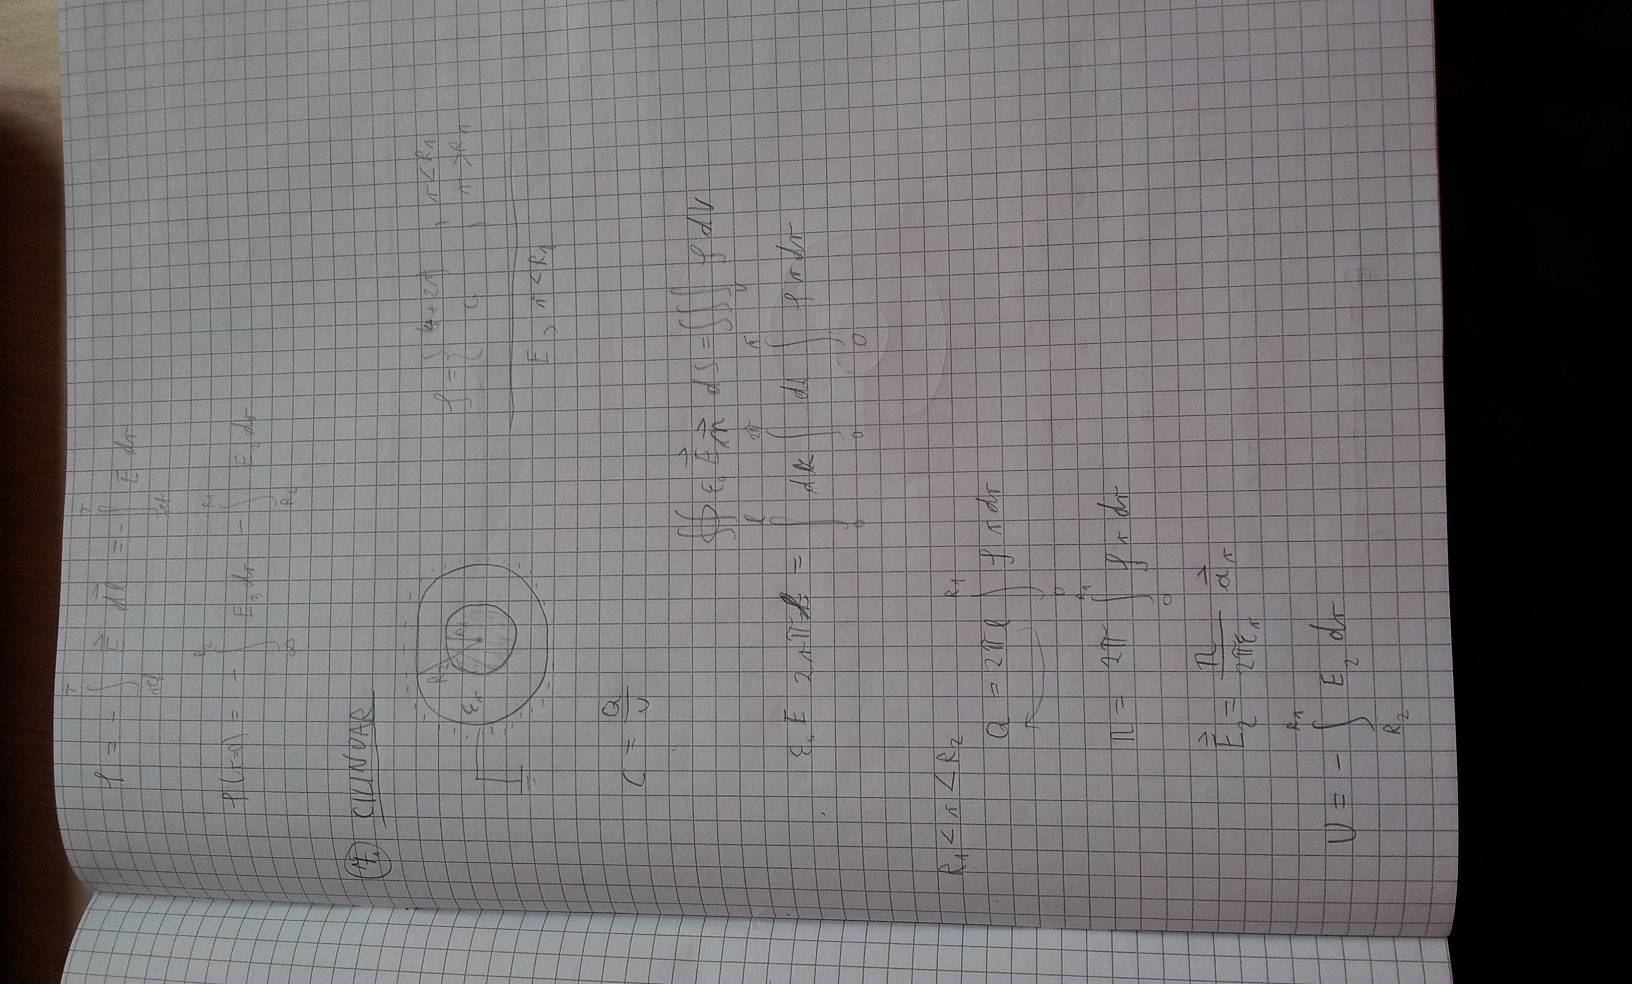 φ = - ∫_ref^T E⃗ dl⃗ = - ∫_ref^T E dr
φ(r=0) = - ∫_∞^R₂ E₃ dr - ∫_R₂^R₁ E₂ dr
7. CILINDAR
R₂ R₁ εᵣ
ρ = { 4+2r , r<R₁
r>R₁
E, r<R₁
C = Q/U
∯ ε₀ E⃗ n⃗ dS = ∭_V ρ dV
ε₀ E 2rπl = ∫_0^l dz ∫_0^2π dφ ∫_0^r ρ r dr
R₁ < r < R₂
Q = 2πl ∫_0^R₁ ρ r dr
λ = 2π ∫_0^R₁ ρ r dr
E⃗₂ = λ/2πεr a⃗ᵣ
U = - ∫_R₂^R₁ E₂ dr